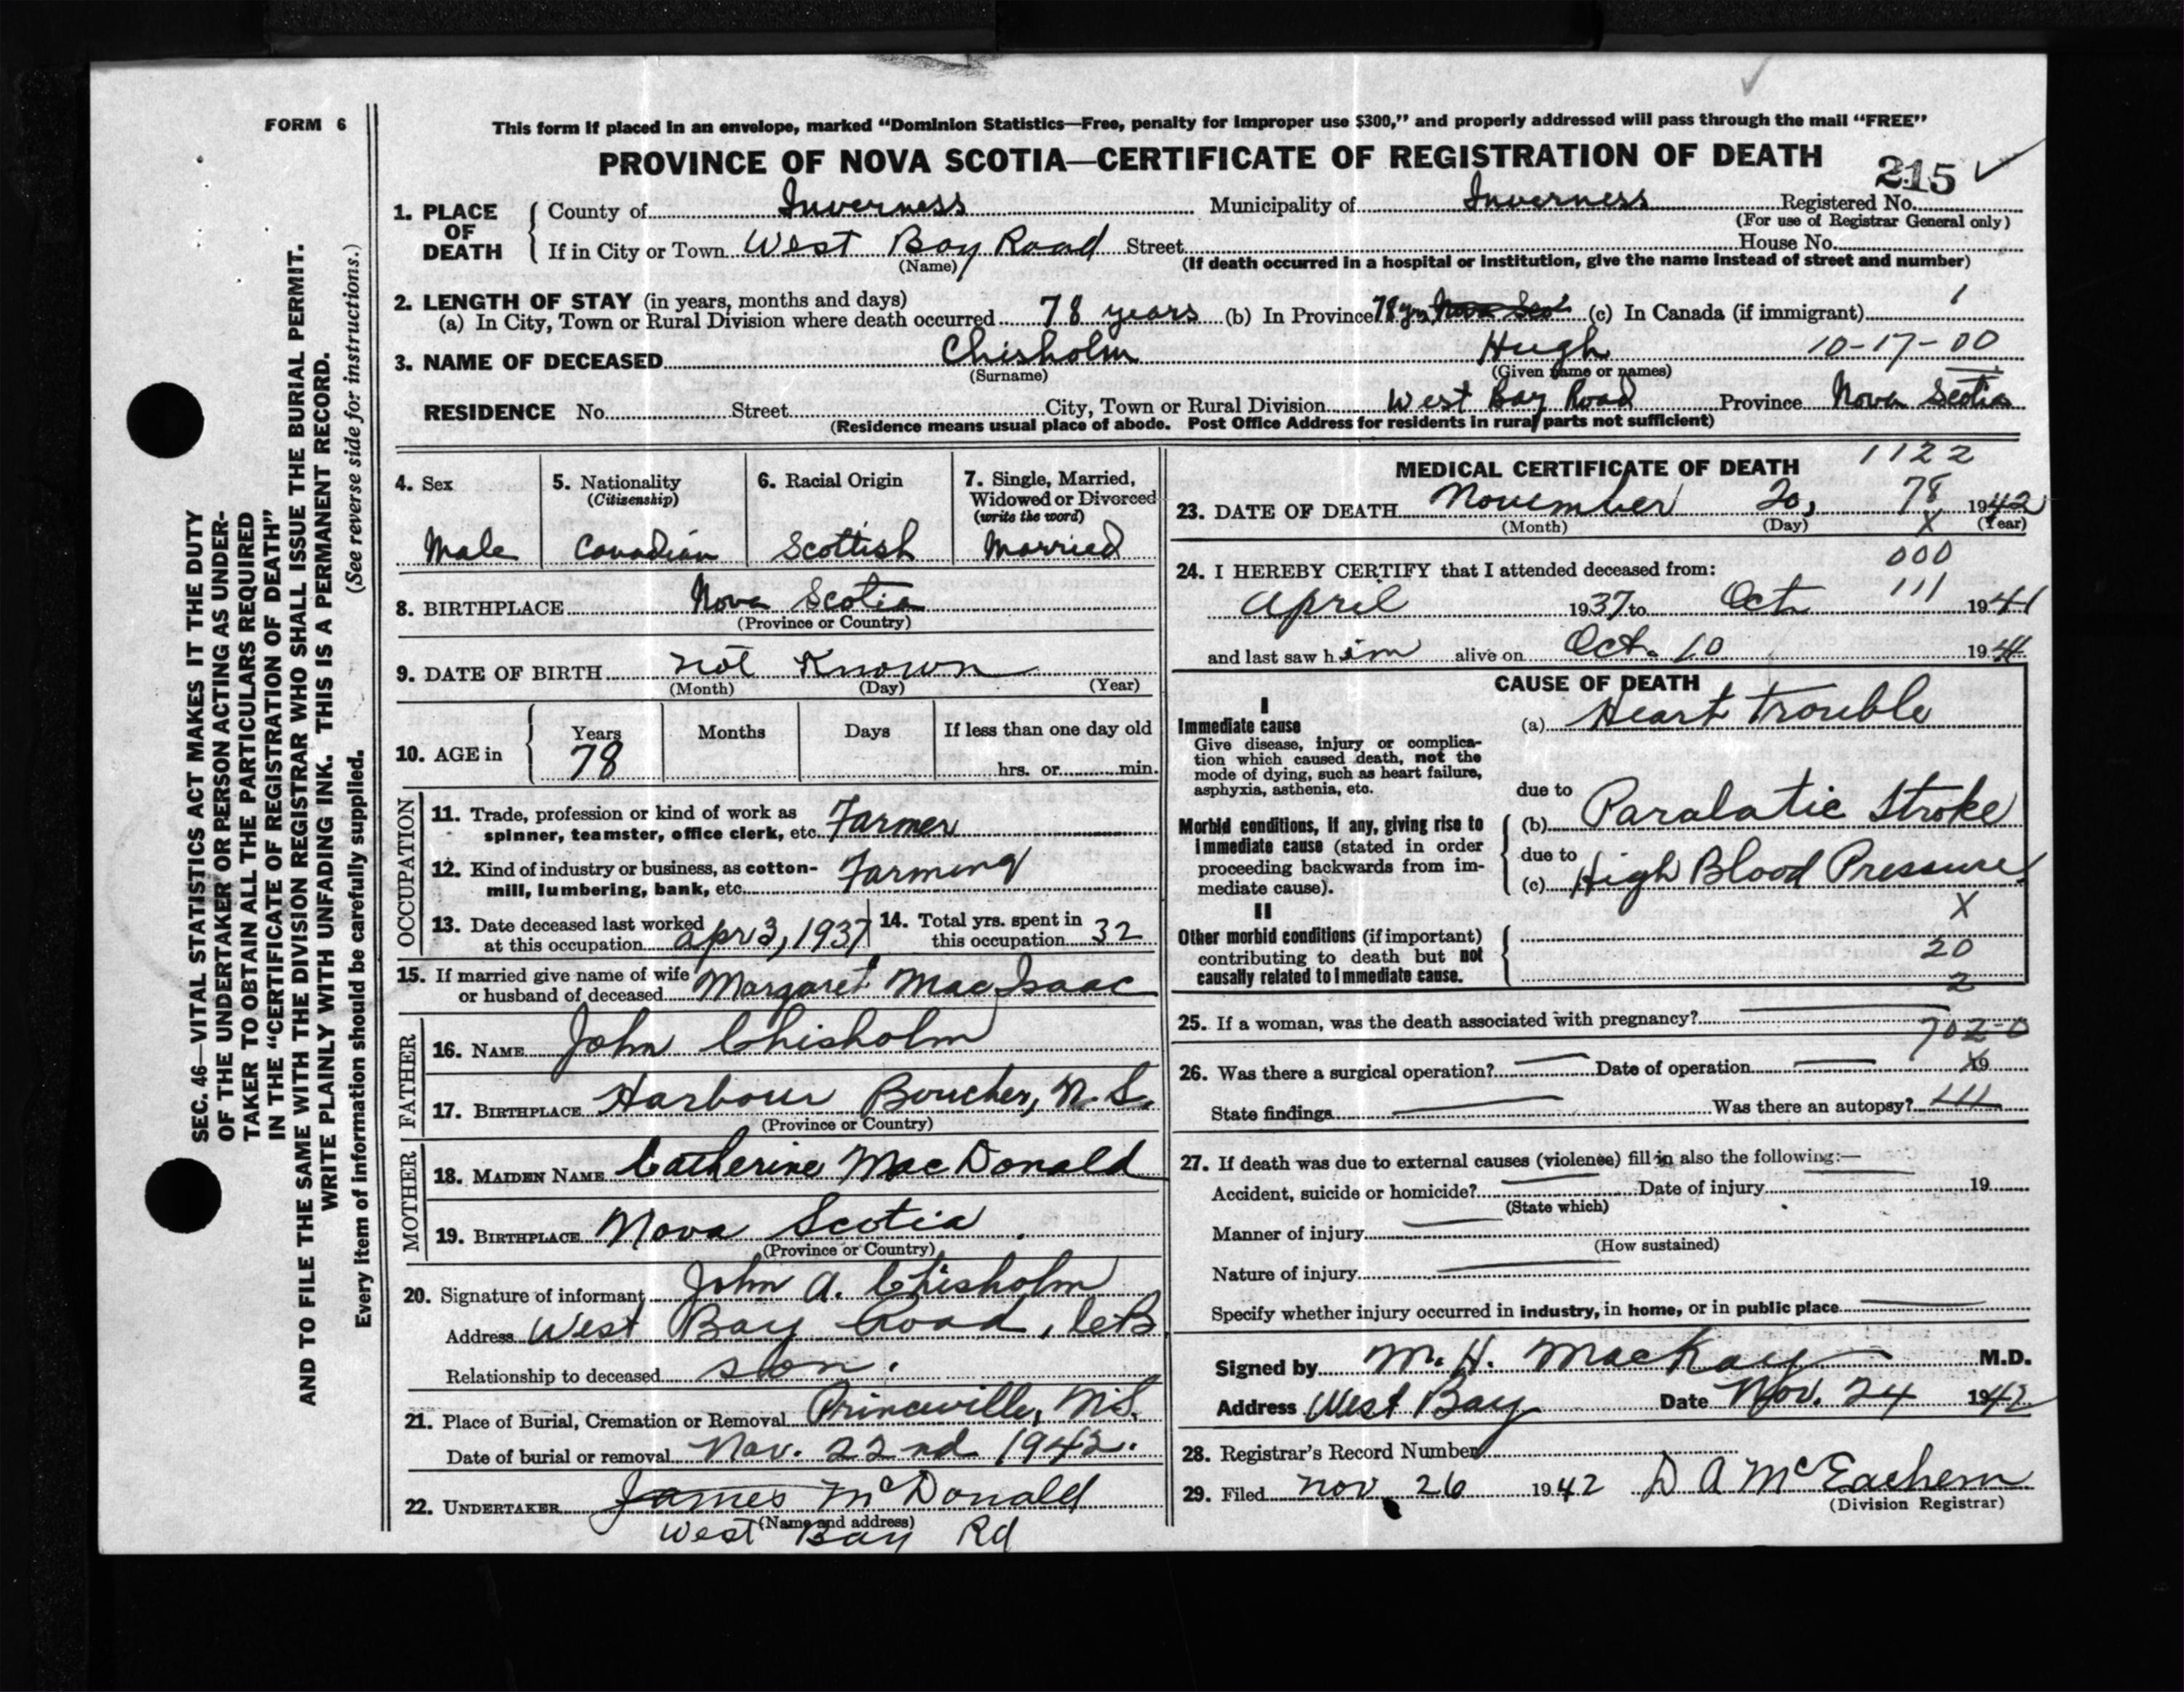 FORM 6
This form if placed in an envelope, marked "Dominion Statistics—Free, penalty for improper use $300," and properly addressed will pass through the mail "FREE"
PROVINCE OF NOVA SCOTIA—CERTIFICATE OF REGISTRATION OF DEATH
215
1. PLACE OF DEATH { County of Inverness Municipality of Inverness Registered No.
(For use of Registrar General only)
If in City or Town West Bay Road Street House No.
(Name) (If death occurred in a hospital or institution, give the name instead of street and number)
2. LENGTH OF STAY (in years, months and days) 1
(a) In City, Town or Rural Division where death occurred 78 years (b) In Province 78 yrs Nova Sco (c) In Canada (if immigrant)
3. NAME OF DECEASED Chisholm Hugh 10-17-00
(Surname) (Given name or names)
RESIDENCE No. Street City, Town or Rural Division West Bay Road Province Nova Scotia
(Residence means usual place of abode. Post Office Address for residents in rural parts not sufficient)
4. Sex 5. Nationality (Citizenship) 6. Racial Origin 7. Single, Married, Widowed or Divorced (write the word)
Male Canadian Scottish Married
8. BIRTHPLACE Nova Scotia
(Province or Country)
9. DATE OF BIRTH not Known
(Month) (Day) (Year)
10. AGE in { Years Months Days If less than one day old
78 hrs. or min.
OCCUPATION
11. Trade, profession or kind of work as
spinner, teamster, office clerk, etc. Farmer
12. Kind of industry or business, as cotton-
mill, lumbering, bank, etc. Farming
13. Date deceased last worked at this occupation Apr 3, 1937 14. Total yrs. spent in this occupation 32
15. If married give name of wife
or husband of deceased Margaret MacIsaac
FATHER
16. NAME John Chisholm
17. BIRTHPLACE Harbour Boucher, N.S.
(Province or Country)
MOTHER
18. MAIDEN NAME Catherine MacDonald
19. BIRTHPLACE Nova Scotia
(Province or Country)
20. Signature of informant John A. Chisholm
Address West Bay Road, C.B
Relationship to deceased son.
21. Place of Burial, Cremation or Removal Princeville, N.S.
Date of burial or removal Nov. 22nd 1942.
22. UNDERTAKER James McDonald
(Name and address)
West Bay Rd
MEDICAL CERTIFICATE OF DEATH 1122
23. DATE OF DEATH November 20, 78 1942
(Month) (Day) X (Year)
24. I HEREBY CERTIFY that I attended deceased from: 000
April 1937 to Oct 111 1941
and last saw him alive on Oct. 10 1941
CAUSE OF DEATH
I
Immediate cause (a) Heart trouble
Give disease, injury or complica-
tion which caused death, not the
mode of dying, such as heart failure,
asphyxia, asthenia, etc.
due to
Morbid conditions, if any, giving rise to (b) Paralatic Stroke
immediate cause (stated in order
proceeding backwards from im- due to
mediate cause). (c) High Blood Pressure
II X
Other morbid conditions (if important)
contributing to death but not 20
causally related to immediate cause. 2
25. If a woman, was the death associated with pregnancy?
702-0
26. Was there a surgical operation? Date of operation 19
State findings Was there an autopsy? 111
27. If death was due to external causes (violence) fill in also the following:—
Accident, suicide or homicide? Date of injury 19
(State which)
Manner of injury
(How sustained)
Nature of injury
Specify whether injury occurred in industry, in home, or in public place
Signed by M. H. MacKay M.D.
Address West Bay Date Nov. 24 1942
28. Registrar's Record Number
29. Filed Nov 26 1942 D A McEachern
(Division Registrar)
SEC. 46—VITAL STATISTICS ACT MAKES IT THE DUTY
OF THE UNDERTAKER OR PERSON ACTING AS UNDER-
TAKER TO OBTAIN ALL THE PARTICULARS REQUIRED
IN THE "CERTIFICATE OF REGISTRATION OF DEATH"
AND TO FILE THE SAME WITH THE DIVISION REGISTRAR WHO SHALL ISSUE THE BURIAL PERMIT.
WRITE PLAINLY WITH UNFADING INK. THIS IS A PERMANENT RECORD.
Every item of information should be carefully supplied. (See reverse side for instructions.)